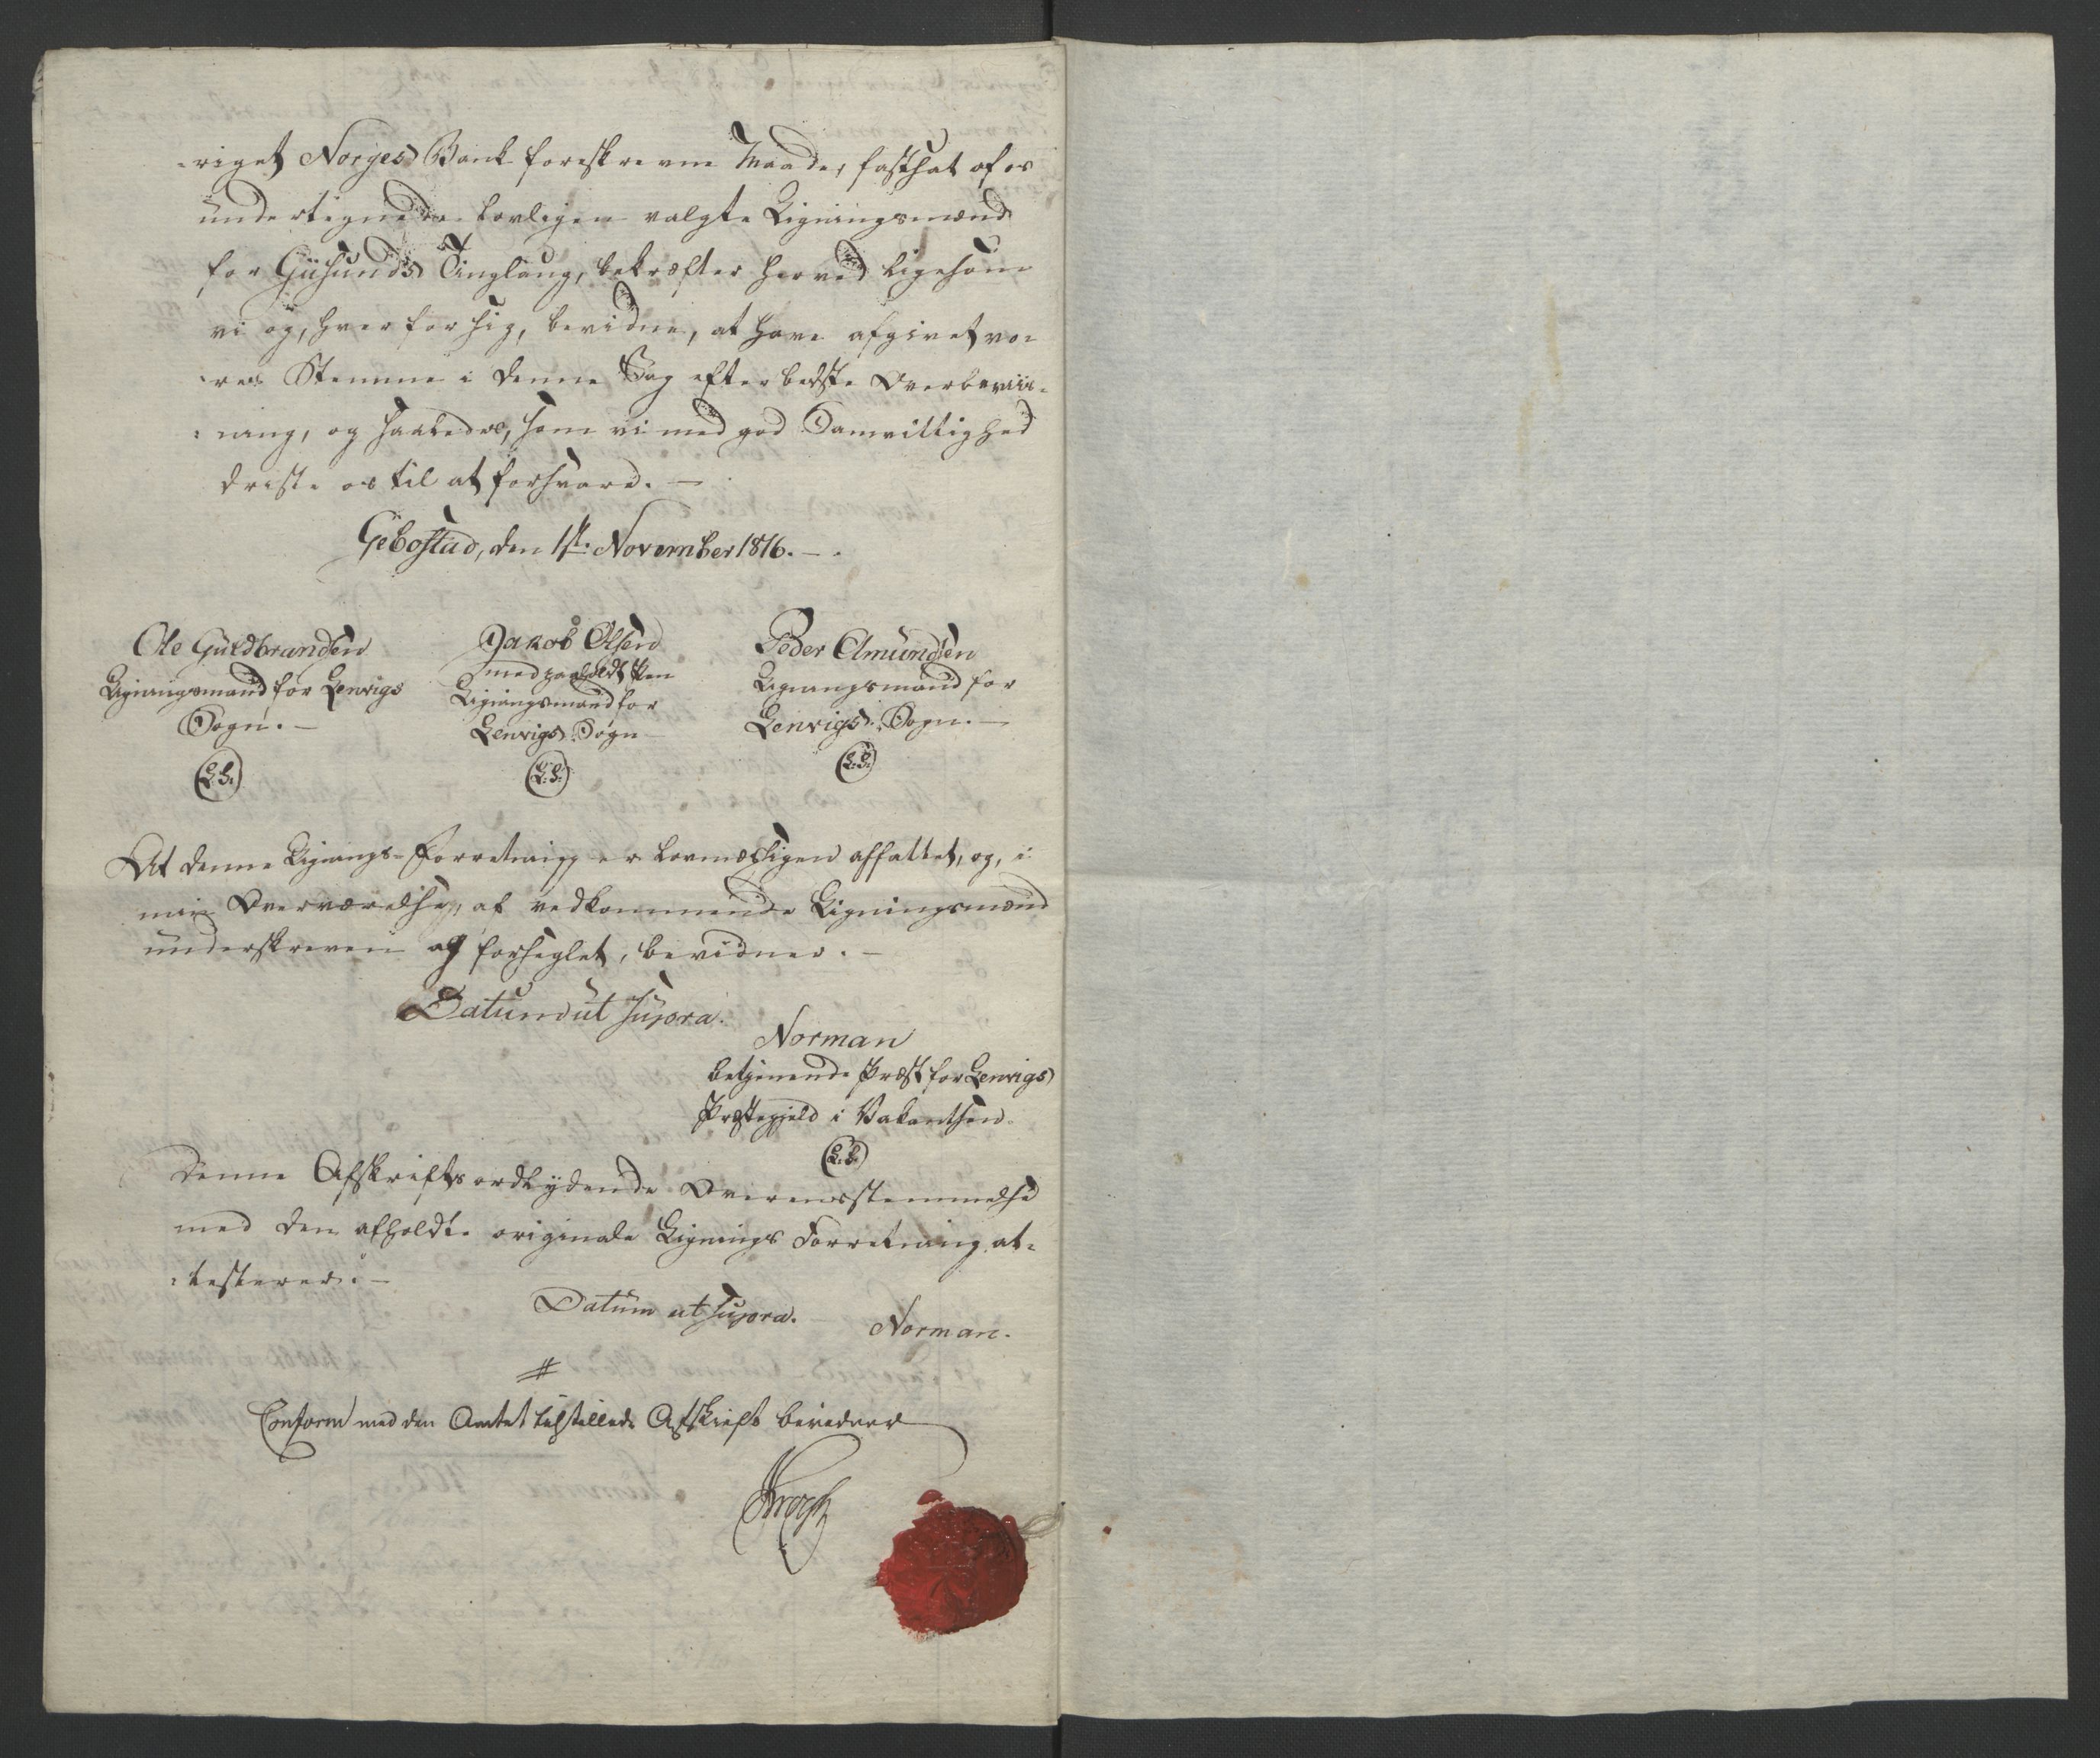 -riget Norges Bank foreskrevne Maade, fastsat af os
undertegnede lovligen valgte Ligningsmænd
for Giisunds Tinglaug, bekræfter herved ligesom
vi og, hver for sig, bevidne, at have afgivet vo-
-res Stemme i denne Sag efter bedste Overbeviis-
-ning, og saaledes, som vi med god Samvittighed
driste os til at forsvare. —
Gebostad, den 1ste November 1816. —
Ole Guldbrandsen
Ligningsmand for Lenvigs
Sogn. —
(L.S.)
Jakob Olsen
med paaholdt Pen
Ligningsmand for
Lenvigs Sogn —
(L.S.)
Peder Amundsen
Ligningsmand for
Lenvigs Sogn. —
(L.S.)
At denne Lignings-Forretning er lovmæssigen affattet, og, i
min Overværelse, af vedkommende Ligningsmænd
underskreven og forseglet, bevidner. —
Datum ut supra.
Norman
betjenende Præst for Lenvigs
Præstegjeld i Vakantsen.
(L.S.)
Denne Afskrifts ordlydende Overensstemmelse
med den afholdte originale Lignings Forretning at-
-testerer. —
Datum ut supra.
Norman.
#
Conform med den Amtet tilstillede Afskrift bevidner
Krogh